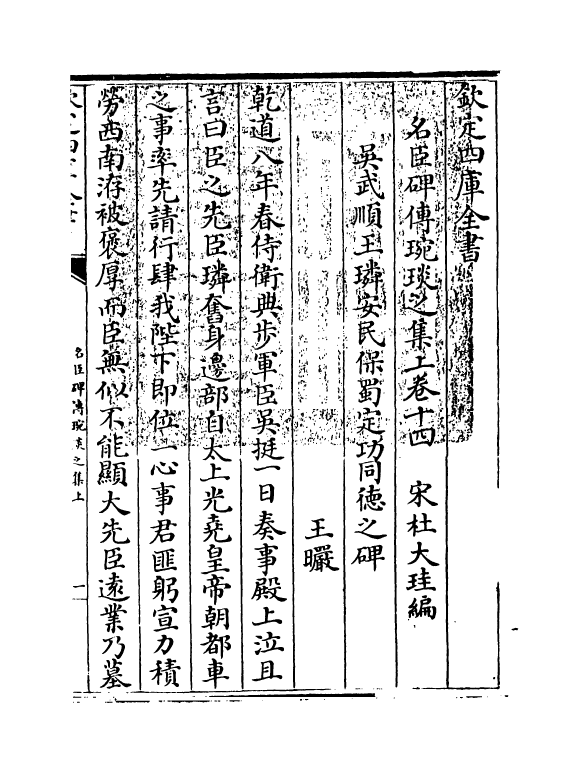 欽定四庫全書
名臣碑傳琬琰之集上卷十四　宋杜大珪編
吳武順王璘安民保蜀定功同德之碑
王曮
乾道八年春侍衛典步軍臣吳挺一日奏事殿上泣且
言曰臣之先臣璘奮身邊部自太上光堯皇帝朝都車
之事率先請行肆我陛下即位一心事君匪躬宣力積
勞西南洊被褒厚而臣無似不能顯大先臣遠業乃墓
欽定四庫全書
名臣碑傳琬琰之集上
一